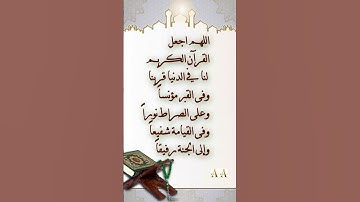 اللهم اجعل
القرآن الكريم
لنا في الدنيا قرينا
وفى القبر مؤنساً
وعلى الصراط نوراً
وفى القيامة شفيعاً
وإلى الجنة رفيقاً